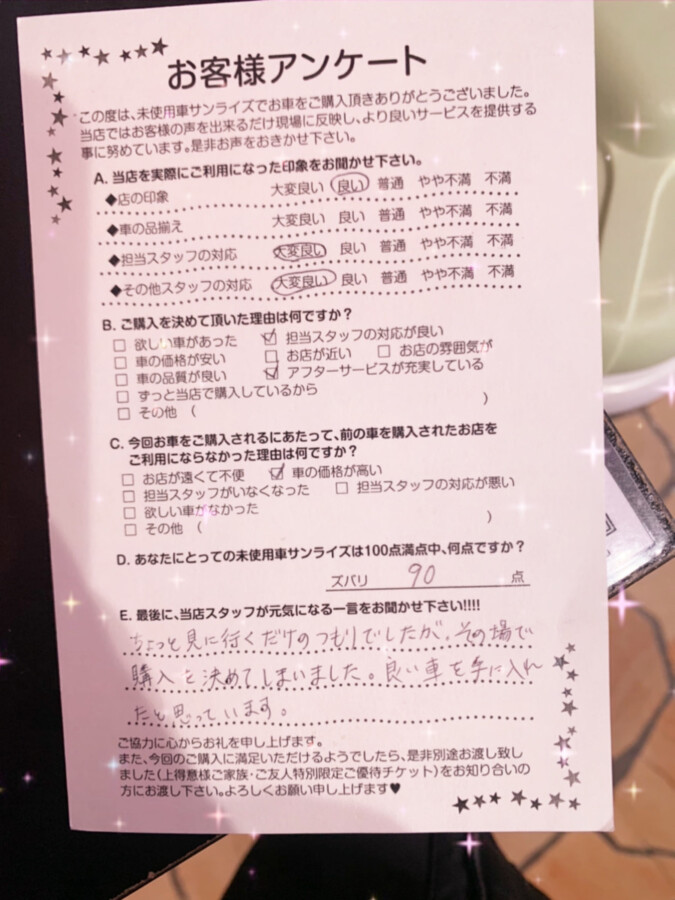 お客様アンケート
この度は、未使用車サンライズでお車をご購入頂きありがとうございました。
当店ではお客様の声を出来るだけ現場に反映し、より良いサービスを提供する
事に努めています。是非お声をおきかせ下さい。
A. 当店を実際にご利用になった印象をお聞かせ下さい。
◆店の印象 大変良い 良い 普通 やや不満 不満
◆車の品揃え 大変良い 良い 普通 やや不満 不満
◆担当スタッフの対応 大変良い 良い 普通 やや不満 不満
◆その他スタッフの対応 大変良い 良い 普通 やや不満 不満
B. ご購入を決めて頂いた理由は何ですか？
□ 欲しい車があった ☑ 担当スタッフの対応が良い
□ 車の価格が安い □ お店が近い □ お店の雰囲気が
□ 車の品質が良い ☑ アフターサービスが充実している
□ ずっと当店で購入しているから
□ その他 （ ）
C. 今回お車をご購入されるにあたって、前の車を購入されたお店を
ご利用にならなかった理由は何ですか？
□ お店が遠くて不便 ☑ 車の価格が高い
□ 担当スタッフがいなくなった □ 担当スタッフの対応が悪い
□ 欲しい車がなかった
□ その他 （ ）
D. あなたにとっての未使用車サンライズは100点満点中、何点ですか？
ズバリ 90 点
E. 最後に、当店スタッフが元気になる一言をお聞かせ下さい!!!!
ちょっと見に行くだけのつもりでしたが、その場で
購入を決めてしまいました。良い車を手に入れ
たと思っています。
ご協力に心からお礼を申し上げます。
また、今回のご購入に満足いただけるようでしたら、是非別途お渡し致し
ました（上得意様ご家族・ご友人特別限定ご優待チケット）をお知り合いの
方にお渡し下さい。よろしくお願い申し上げます♥